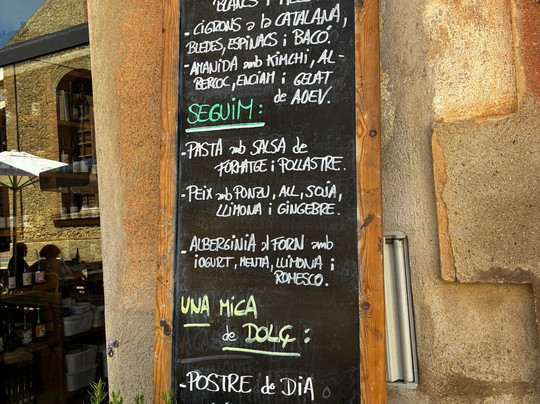 BLANCS i
- CIGRONS a la CATALANA,
BLEDES, ESPINACS i BACÓ.
- AMANIDA amb KIMCHI, AL-
BERCOC, ENCIAM i GELAT
de ADEV.
SEGUIM:
- PASTA amb SALSA de
FORMATGE i POLLASTRE.
- PEIX amb PONZU, ALL, SOJA,
LLIMONA i GINGEBRE.
- ALBERGINIA al FORN amb
IOGURT, MENTA, LLIMONA i
ROMESCO.
UNA MICA
de DOLÇ:
- POSTRE de DIA